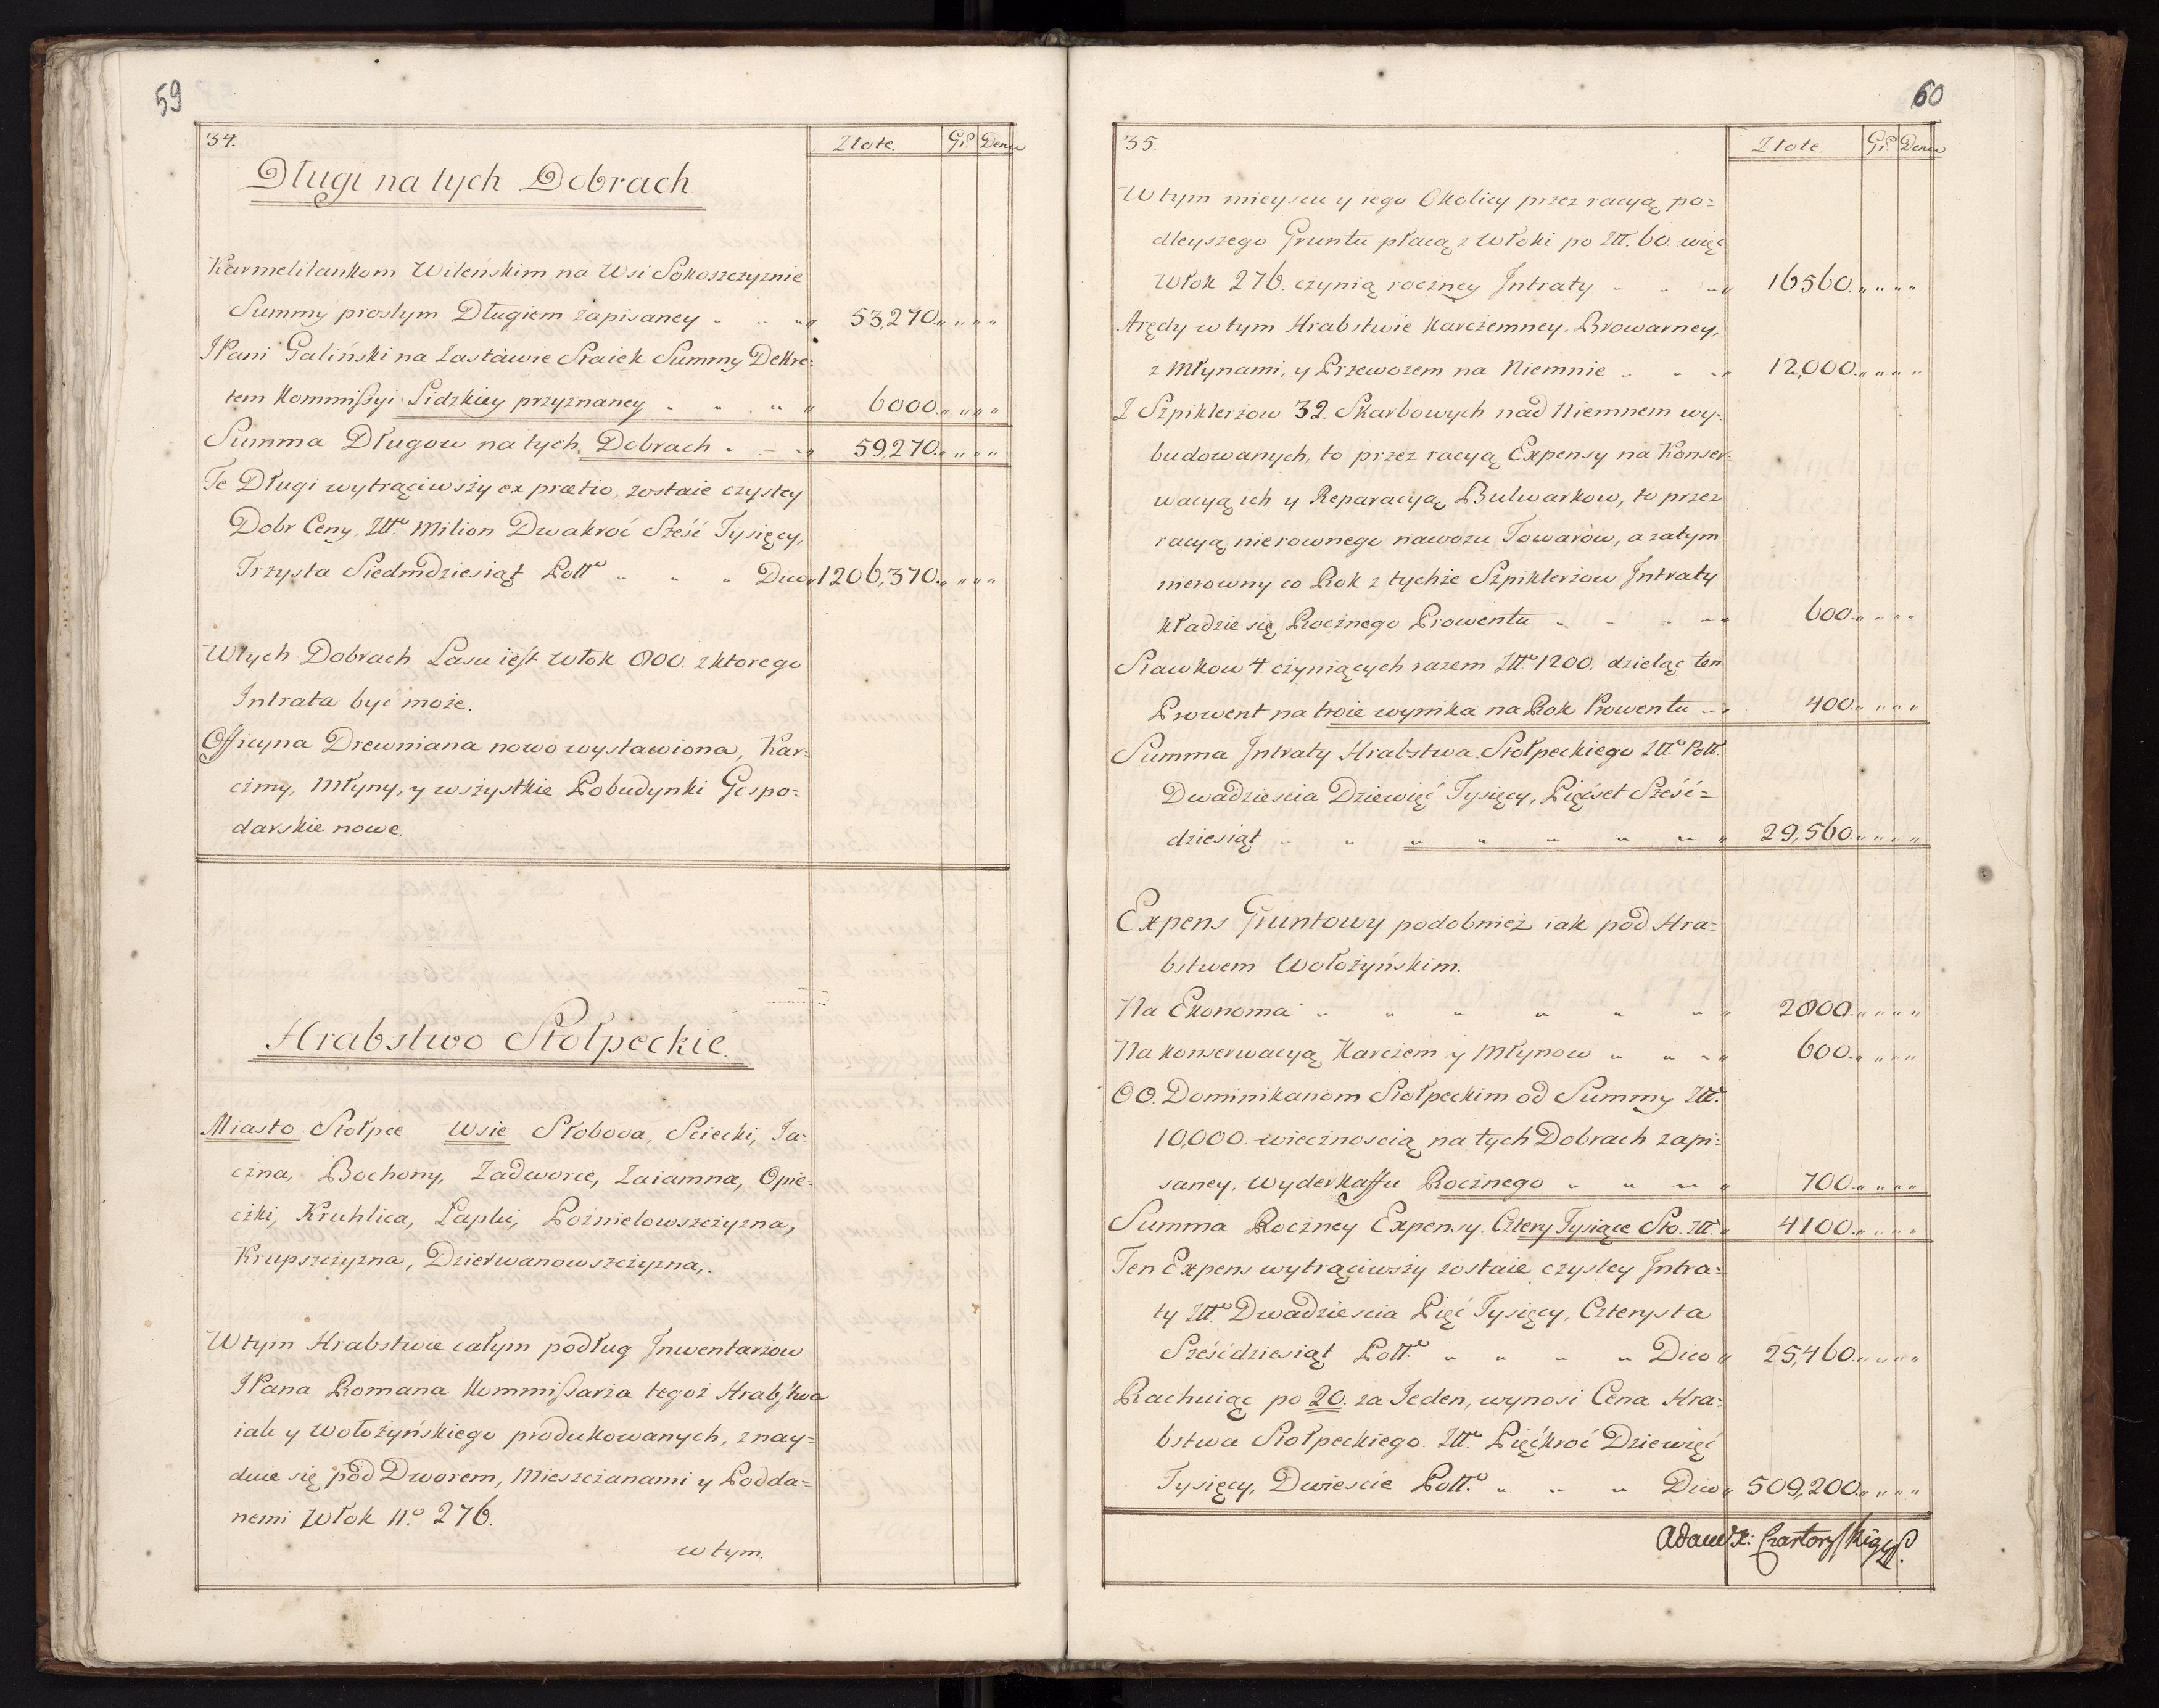 59
34. Złote. Gr. Denar
Długi na tych Dobrach.
Karmelitankom Wileńskim na Wsi Sokoszczyznie
Summy prostym Długiem zapisaney „ „ „ 53,270. „ „ „
JPani Galiński na Zastawie Staiek Summy Dekre=
tem Kommißyi Lidzkiey przyznaney „ „ „ „ 6000. „ „ „
Summa Długow na tych Dobrach „ „ „ 59,270. „ „ „
Te Długi wytrąciwszy ex prætio, zostaie czystey
Dobr Ceny, Złł. Milion Dwakroć Sześć Tysięcy,
Trzysta Siedmdziesiąt Poll „ „ „ Dico 1206,370. „ „ „
W tych Dobrach Lasu iest Włok 800. z ktorego
Intrata być może.
Officyna Drewniana nowo wystawiona, Kar=
czmy, Młyny, y wszystkie Pobudynki Gospo=
darskie nowe.
Hrabstwo Stołpeckie.
Miasto Stołpce Wsie Słoboda, Sciecki, Ja=
czna, Bochony, Zadworce, Zaiamna, Opie=
czki, Kruhlica, Łapki, Poźnielowszczyzna,
Krupszczyzna, Dzierwanowszczyzna,.
W tym Hrabstwie całym podług Inwentarzow
JPana Romana Kommißarza tegoż Hrabstwa
iak y Wołożyńskiego produkowanych, znay=
duie się pod Dworem, Mieszczanami y Podda=
nemi Włok No. 276.
w tym.
60
35. Złote. Gr. Denar
W tym mieyscu y iego Okolicy przez racyą po=
dleyszego Gruntu płacą z Włoki po Złł. 60. więc
Włok 276. czynią roczney Intraty „ „ „ 16560. „ „ „
Arędy w tym Hrabstwie Karczemney, Browarney,
z Młynami, y Przewozem na Niemnie „ „ „ 12,000. „ „ „
Z Szpiklerzow 32. Skarbowych nad Niemnem wy=
budowanych, to przez racyą Expensy na Konser=
wacyą ich y Reparacyą Bulwarkow, to przez
racyą nierownego nawozu Towarów, a zatym
nierowny co Rok z tychże Szpiklerzow Intraty
kładzie się Rocznego Prowentu „ „ „ 600. „ „ „
Stawkow 4. czyniących razem Złł. 1200. dzieląc ten
Prowent na troie wynika na Rok Prowentu „ 400. „ „ „
Summa Intraty Hrabstwa Stołpeckiego Złł. Poll.
Dwadziescia Dziewięć Tysięcy, Pięćset Sześć=
dziesiąt „ „ „ „ „ „ „ 29,560. „ „ „
Expens Gruntowy podobnież iak pod Hra=
bstwem Wołożyńskim.
Na Ekonoma „ „ „ „ „ „ 2800. „ „ „
Na konserwacyą Karczem y Młynow „ „ „ 600. „ „ „
OO. Dominikanom Stołpeckim od Summy Złł.
10,000. wiecznoscią na tych Dobrach zapi=
saney, Wyderkaffu Rocznego „ „ „ 700. „ „ „
Summa Roczney Expensy. Cztery Tysiące Sto. Złł. 4100. „ „ „
Ten Expens wytrąciwszy zostaie czystey Intra=
ty Złł. Dwadziescia Pięć Tysięcy, Czterysta
Sześćdziesiąt Poll. „ „ „ „ Dico „ 25,460. „ „ „
Rachuiąc po 20. za Jeden, wynosi Cena Hra=
bstwa Stołpeckiego. Złł. Pięćkroć Dziewięć
Tysięcy, Dwiescie Poll. „ „ „ Dico „ 509,200. „ „ „
Adam X: Czartoryski